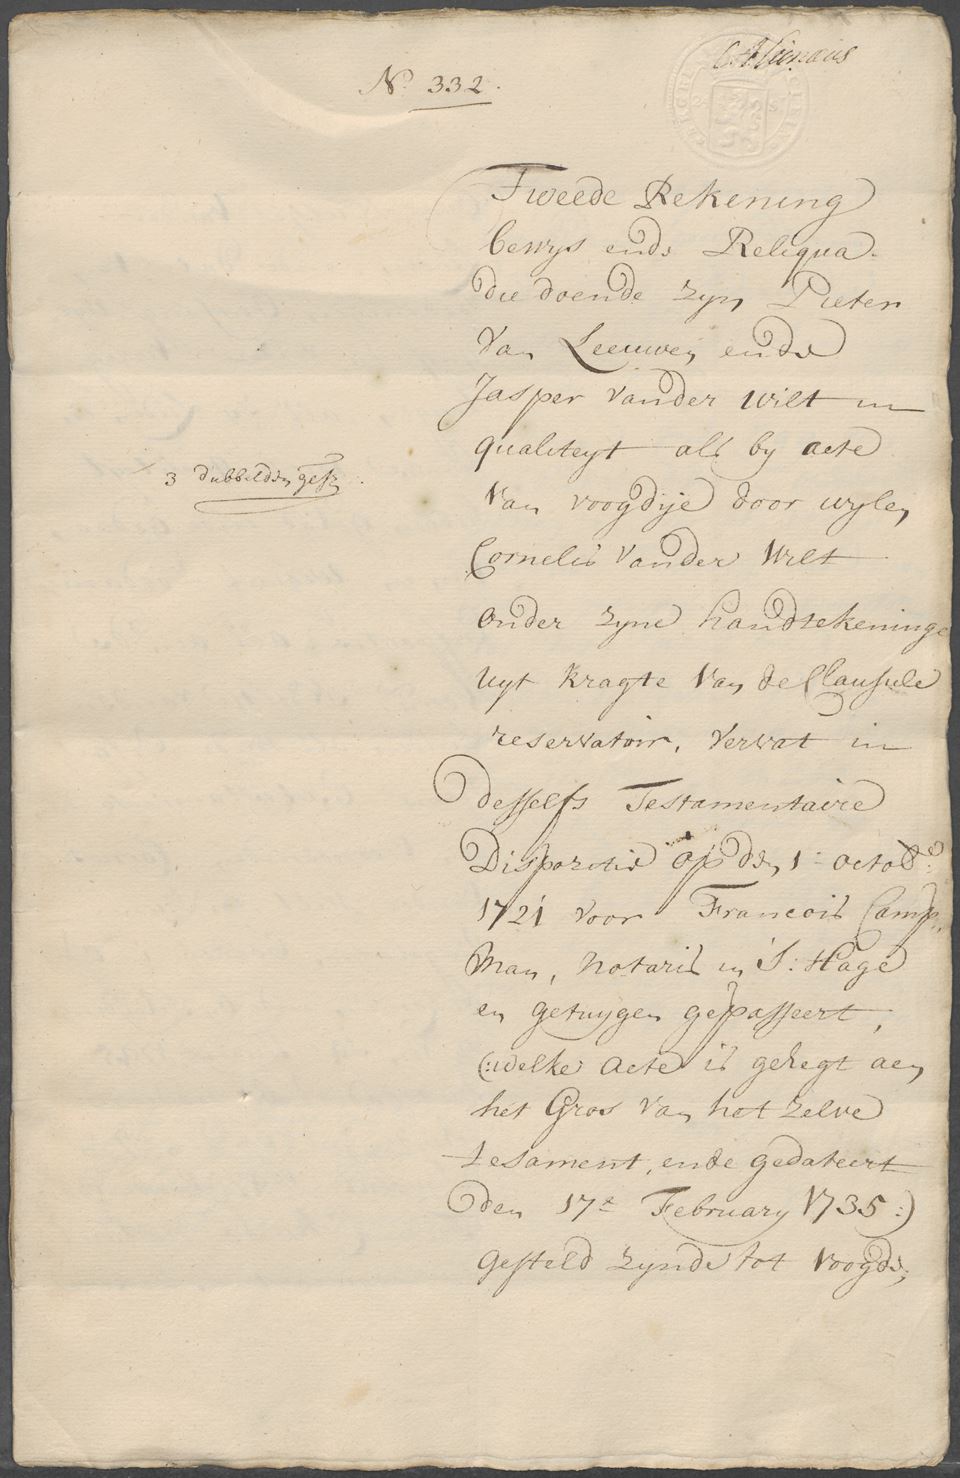 No 332.
Tweede Rekening
bewys ende Reliqua.
die doende zyn Pieter
van Leeuwen ende
Jasper vander Wilt in
qualiteyt als by acte
van voogdije door wylen
Cornelis vander Wilt
onder zyne handtekeninge
uyt kragte van de Clausule
reservatoir, vervat in
desselfs Testamentaire
Dispositie op den 1e octob:
1721 voor Francois Camp-
man, notaris in 'S: Hage
en getuygen gepasseert,
(:welke acte is gehegt aen
het Gros van het zelve
testament, ende gedateert
den 17e February 1735:)
gesteld zynde tot voogden
3 dubbelden